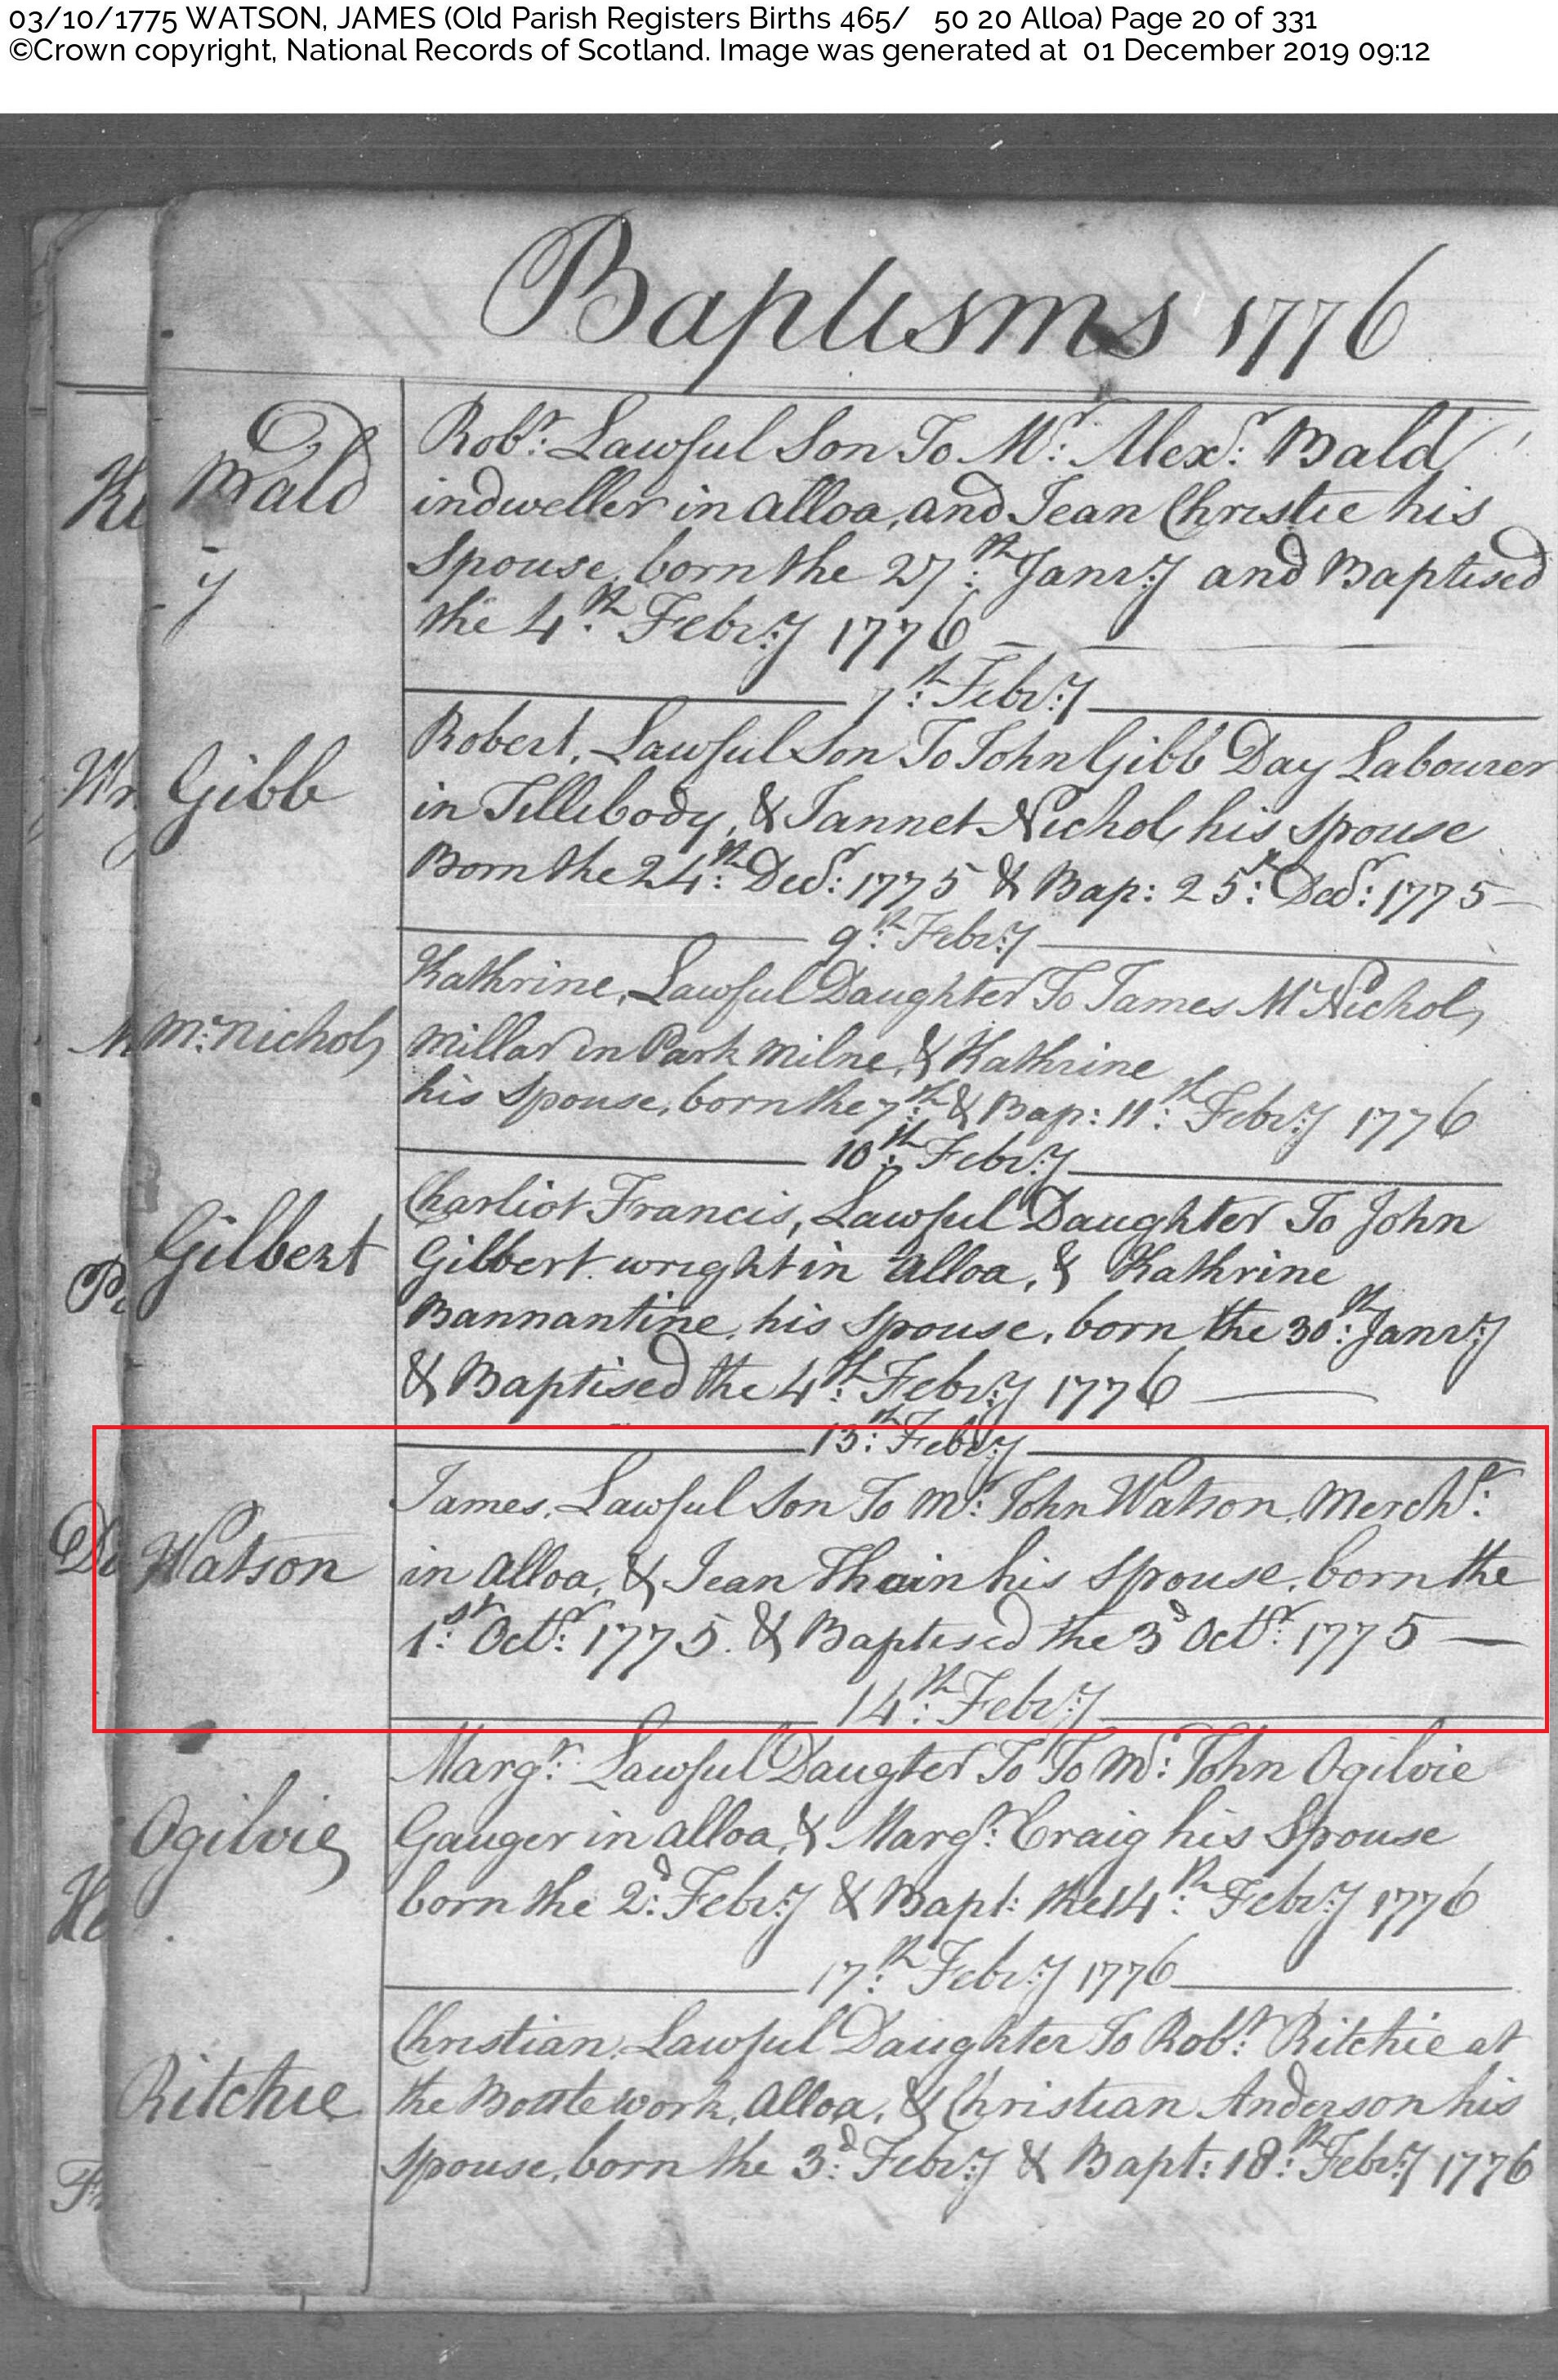 03/10/1775 WATSON, JAMES (Old Parish Registers Births 465/ 50 20 Alloa) Page 20 of 331
©Crown copyright, National Records of Scotland. Image was generated at 01 December 2019 09:12
Baptisms 1776
Bald
Robt: Lawful Son To Mr: Alexr: Bald
indweller in alloa, and Jean Christie his
Spouse, born the 27th: Janry and Baptised
the 4th: Febry 1776
7th: Febry
Gibb
Robert, Lawful Son To John Gibb Day Labourer
in Tillibody, & Jannet Nichol his spouse
Born the 24th: Decr: 1775 & Bap: 25th: Decr: 1775
9th: Febry
Mc:Nichol
Kathrine, Lawful Daughter To James McNichol
Millar in Park milne, & Kathrine
his Spouse, born the 7th: & Bap: 11th: Febry 1776
10th: Febry
Gilbert
Charliot Francis, Lawful Daughter To John
Gilbert wright in alloa, & Kathrine
Bannantine, his Spouse, born the 30th: Janry
& Baptised the 4th: Febry 1776
13th: Febry
Watson
James, Lawful Son To Mr: John Watson, Mercht:
in alloa, & Jean Thain his Spouse, born the
1st: Octr: 1775. & Baptised the 3d Octr: 1775
14th: Febry
Ogilvie
Margt: Lawful Daugter To To Mr: John Ogilvie
Gauger in alloa, & Margt: Craig his Spouse
born the 2d: Febry & Bapt: the 14th: Febry 1776
17th: Febry 1776
Ritchie
Christian, Lawful Daughter To Robt: Ritchie at
the Bottle work, alloa, & Christian Anderson his
Spouse, born the 3d: Febry & Bapt: 18th: Febry 1776